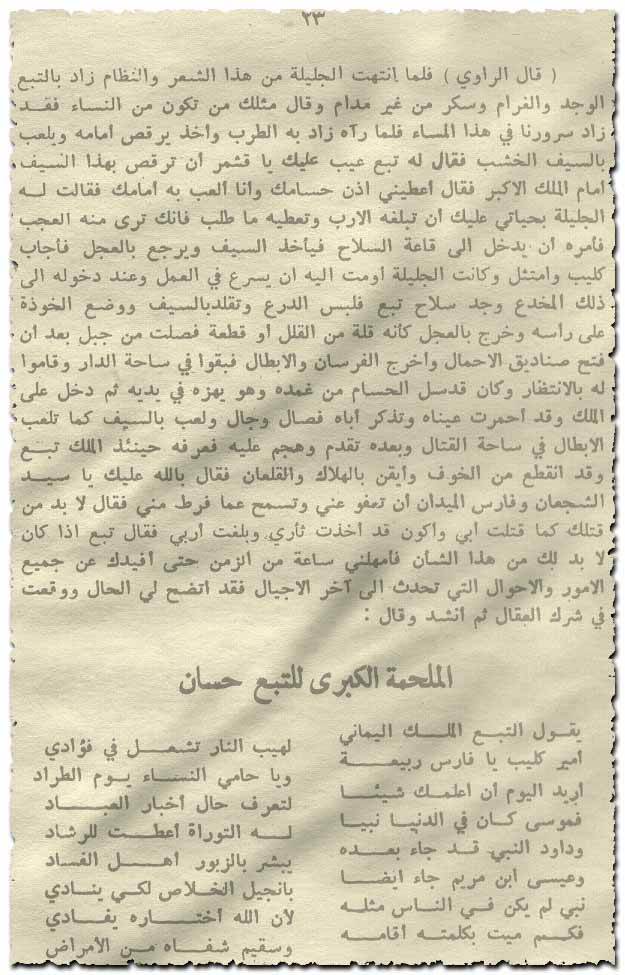 ٢٣
( قال الراوي ) فلما انتهت الجليلة من هذا الشعر والنظام زاد بالتبع
الوجد والغرام وسكر من غير مدام وقال مثلك من تكون من النساء فقد
زاد سرورنا في هذا المساء فلما رآه زاد به الطرب وأخذ يرقص أمامه ويلعب
بالسيف الخشب فقال له تبع عيب عليك يا قشمر أن ترقص بهذا السيف
أمام الملك الاكبر فقال أعطيني اذن حسامك وأنا ألعب به أمامك فقالت لـه
الجليلة بحياتي عليك أن تبلغه الارب وتعطيه ما طلب فانك ترى منه العجب
فأمره أن يدخل الى قاعة السلاح فيأخذ السيف ويرجع بالعجل فأجاب
كليب وامتثل وكانت الجليلة أومت اليه ان يسرع في العمل وعند دخوله الى
ذلك المخدع وجد سلاح تبع فلبس الدرع وتقلدبالسيف ووضع الخوذة
على رأسه وخرج بالعجل كأنه قلة من القلل أو قطعة فصلت من جبل بعد أن
فتح صناديق الاحمال وأخرج الفرسان والابطال فبقوا في ساحة الدار وقاموا
له بالانتظار وكان قدسل الحسام من غمده وهو يهزه في يديه ثم دخل على
الملك وقد أحمرت عيناه وتذكر أباه فصال وجال ولعب بالسيف كما تلعب
الابطال في ساحة القتال وبعده تقدم وهجم عليه فعرفه حينئذ الملك تبـع
وقد انقطع من الخوف وأيقن بالهلاك والقلعان فقال بالله عليك يا سيـد
الشجعان وفارس الميدان أن تعفو عني وتسمح عما فرط مني فقال لا بد من
قتلك كما قتلت أبي وأكون قد أخذت ثأري وبلغت أربي فقال تبع اذا كان
لا بد لك من هذا الشأن فأمهلني ساعة من الزمن حتى أفيدك عن جميع
الامور والاحوال التي تحدث الى آخر الاجيال فقد اتضح لي الحال ووقعت
في شرك العقال ثم أنشد وقال :
الملحمة الكبرى للتبع حسان
يقـول التبـع الملـك اليماني لهيب النار تشعـل في فؤادي
أمير كليب يا فارس ربيعـة ويا حامي النسـاء يـوم الطراد
أريد اليوم أن أعلمـك شيئـا لتعرف حال أخبار العبـاد
فموسى كـان في الدنيـا نبيـا لـه التوراة أعطـت للرشاد
وداود النبي قـد جاء بعـده يبشر بالزبور أهـل الفساد
وعيسى ابن مريم جاء ايضـا بانجيل الخلاص لكي ينـادي
نبي لم يكن فـي الناس مثلـه لأن الله أختـاره يفـادي
فكـم ميت بكلمتـه أقامـه وسقيم شفـاه مـن الأمراض